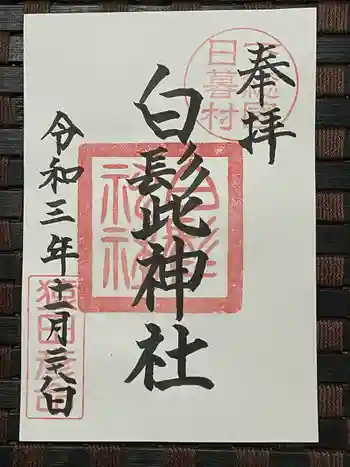 奉拝
日暮村
白髭神社
令和三年十一月二十八日